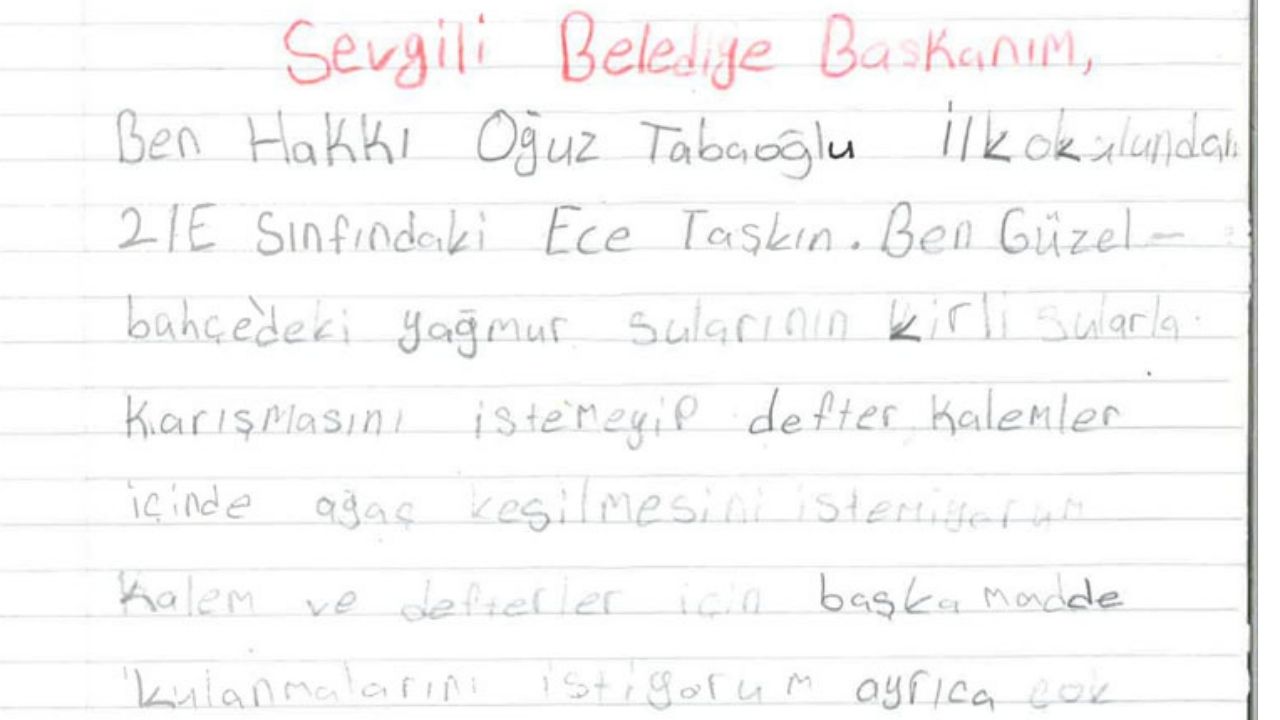 Sevgili Belediye Başkanım,
Ben Hakkı Oğuz Tabaoğlu İlkokulundan
2/E Sınfındaki Ece Taşkın. Ben Güzel-
bahçedeki yağmur sularının kirli sularla
Karışmasını istemeyip defter kalemler
içinde ağaç kesilmesini istemiyorum
Kalem ve defterler için başka madde
kulanmalarını istiyorum ayrıca çok